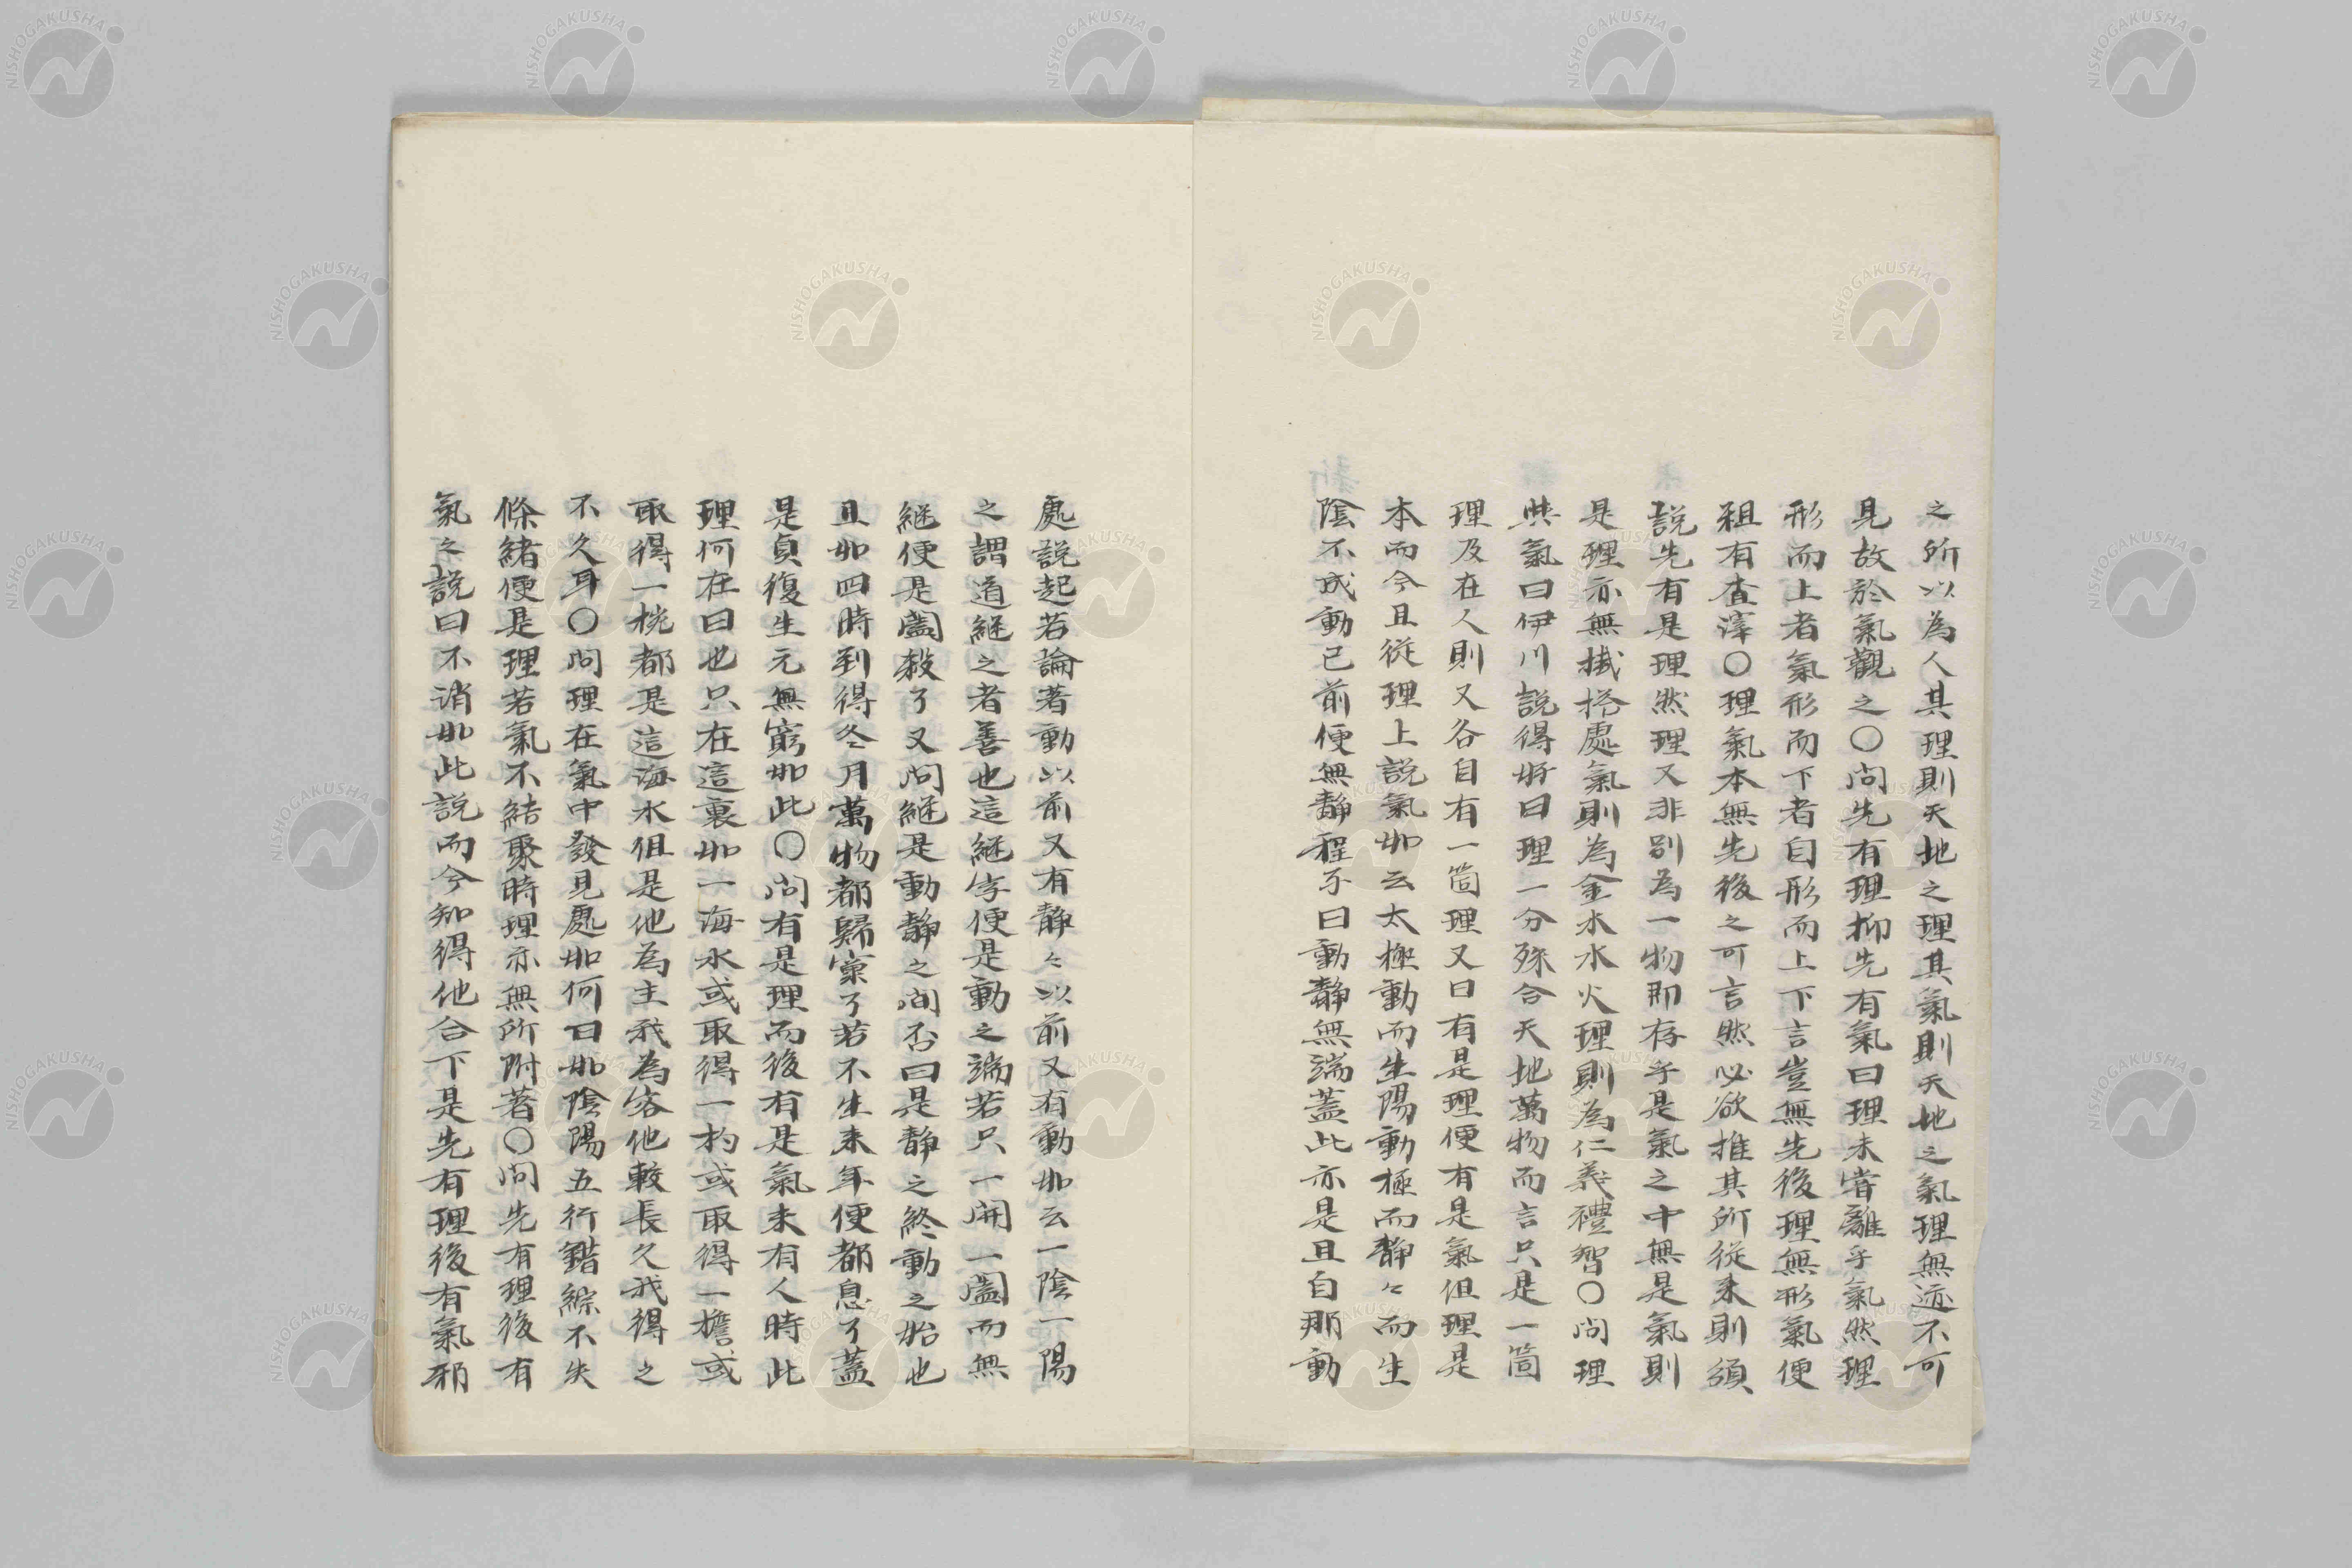 之所以為人其理則天地之理其氣則天地之氣理無迹不可
見故於氣觀之〇問先有理抑先有氣曰理未嘗離乎氣然理
形而上者氣形而下者自形而上下言豈無先後理無形氣便
粗有査滓〇理氣本無先後之可言然必欲推其所從来則須
説先有是理然理又非別為一物即存乎是氣之中無是氣則
是理亦無掛搭處氣則為金水水火理則為仁義禮智〇問理
與氣曰伊川説得好曰理一分殊合天地萬物而言只是一箇
理及在人則又各自有一箇理又曰有是理便有是氣但理是
本而今且從理上説氣如云太極動而生陽動極而静々而生
陰不成動已前便無静程子曰動静無端蓋此亦是且自那動
處説起若論著動以前又有静々以前又有動如云一陰一陽
之謂道継之者善也這継字便是動之端若只一開一闔而無
継便是闔殺了又問継是動静之間否曰是静之終動之始也
且如四時到得冬月萬物都歸窠了若不生来年便都息了蓋
是貞復生元無窮如此〇問有是理而後有是氣未有人時此
理何在曰也只在這裏如一海水或取得一杓或取得一擔或
取得一椀都是這海水但是他為主我為客他較長久我得之
不久耳〇問理在氣中發見處如何曰如陰陽五行錯綜不失
條緒便是理若氣不結聚時理亦無所附著〇問先有理後有
氣之説曰不消如此説而今知得他合下是先有理後有氣邪
NISHOGAKUSHA